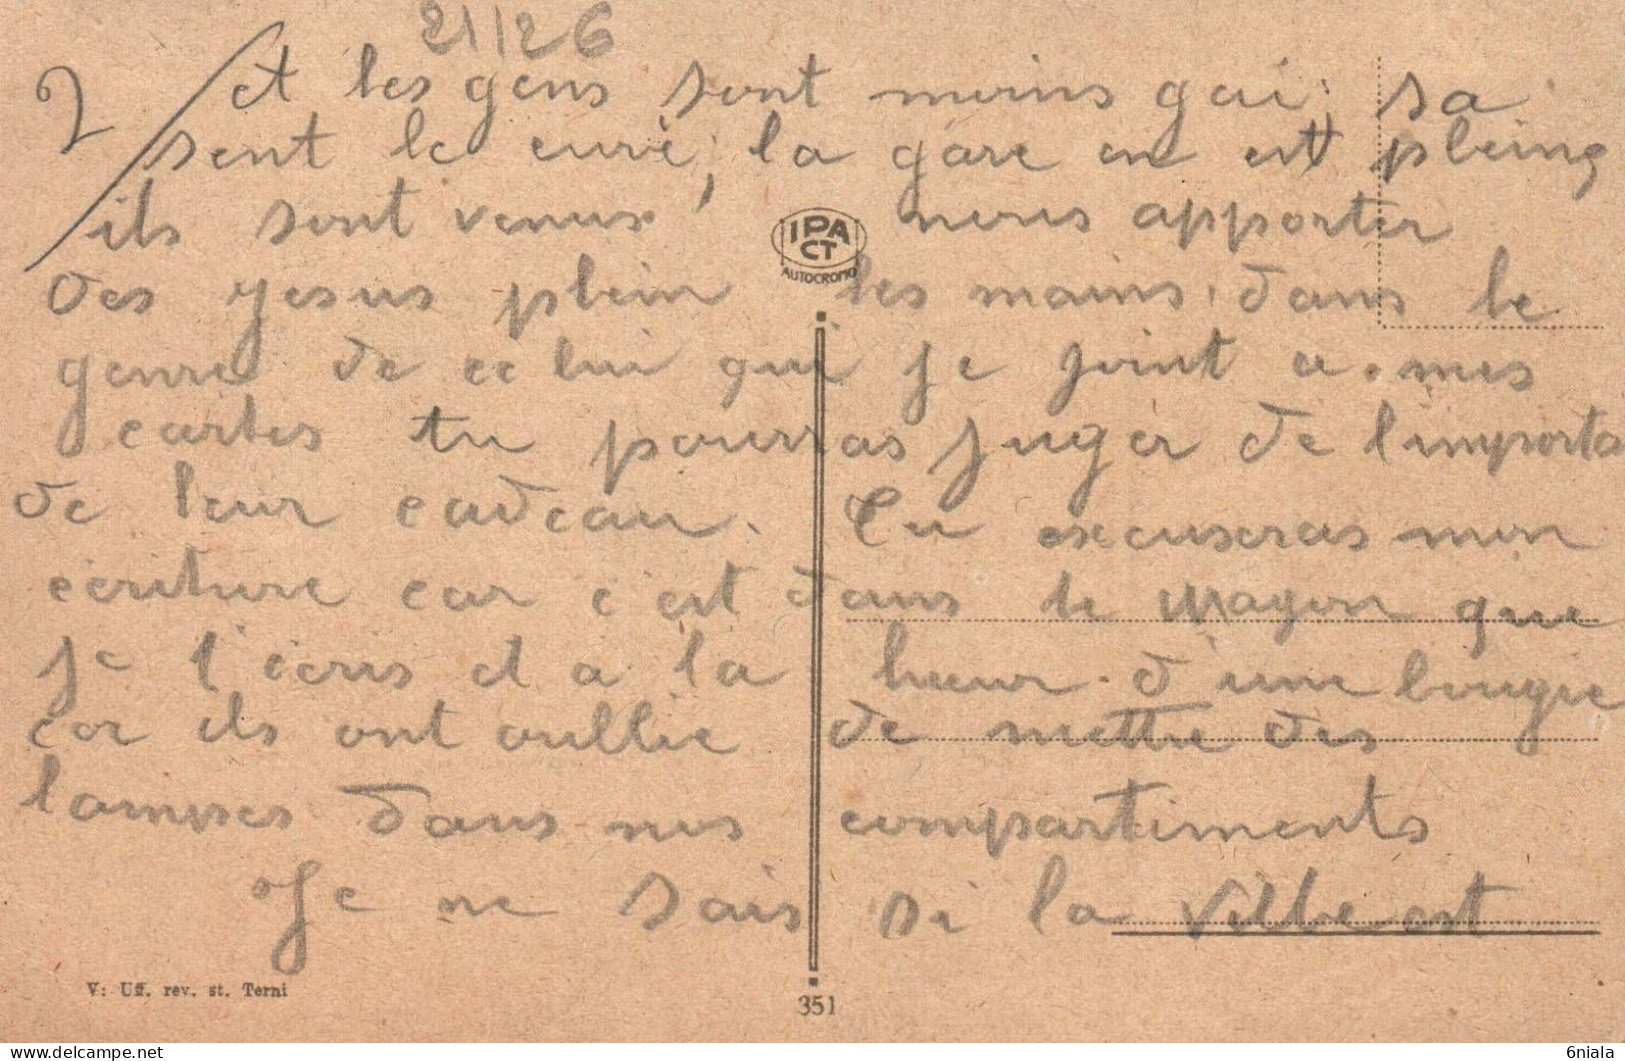 21/26
2/ et les gens sont moins gai; sa
sent le curé, la gare en est pleine
ils sont venus nous apporter
des jesus plein les mains, dans le
genre de celui que je joint a mes
cartes tu pourras juger de l'importa
de leur cadeau. Tu excuseras mon
écriture car c'est dans le wagon que
je t'écris et a la lueur d'une bougie
car ils ont oullie de mettre des
lampes dans nos compartiments
Je ne sais si la ville est
IPA
CT
AUTOCROMO
V: Uff. rev. st. Terni
351
6niala